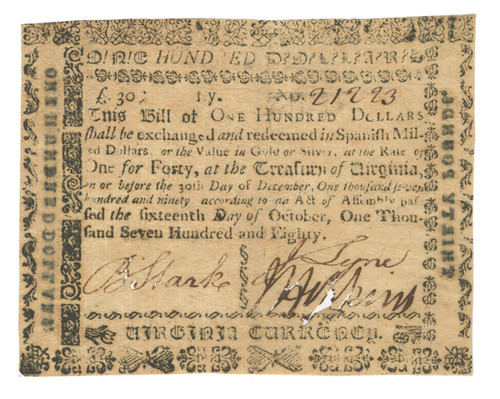 ONE HUNDRED DOLLARS
£. 30: ly. No. 21223
THIS Bill of ONE HUNDRED DOLLARS
shall be exchanged and redeemed in Spanish Mil-
ed Dollars, or the Value in Gold or Silver, at the Rate of
One for Forty, at the Treasury of Virginia,
on or before the 30th Day of December, One thousand seven
hundred and ninety according to an Act of Assembly pas
sed the sixteenth Day of October, One Thou-
sand Seven Hundred and Eighty.
B Stark J Lyne
J Hopkins
VIRGINIA CURRENCY.
ONE HUNDRED DOLLARS